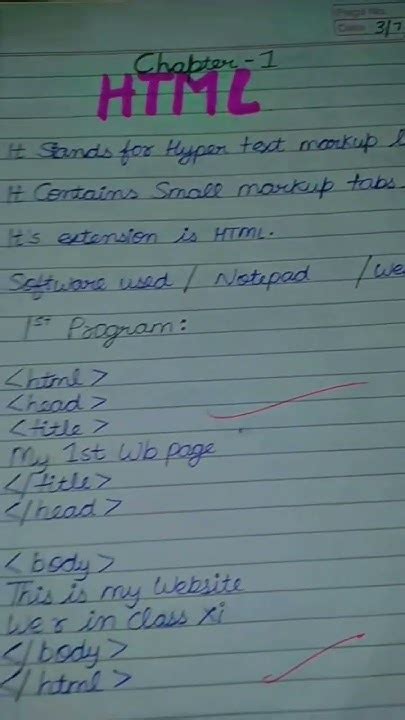 Page No.
Date 3/7
Chapter-1
HTML
It Stands for Hyper text markup l
It Contains Small markup tabs.
It's extension is HTML.
Software used / Notepad /We
1st Program:
<html>
<head>
<title>
My 1st Wb page
</title>
</head>
<body>
This is my Website
We r in class xi
</body>
</html>